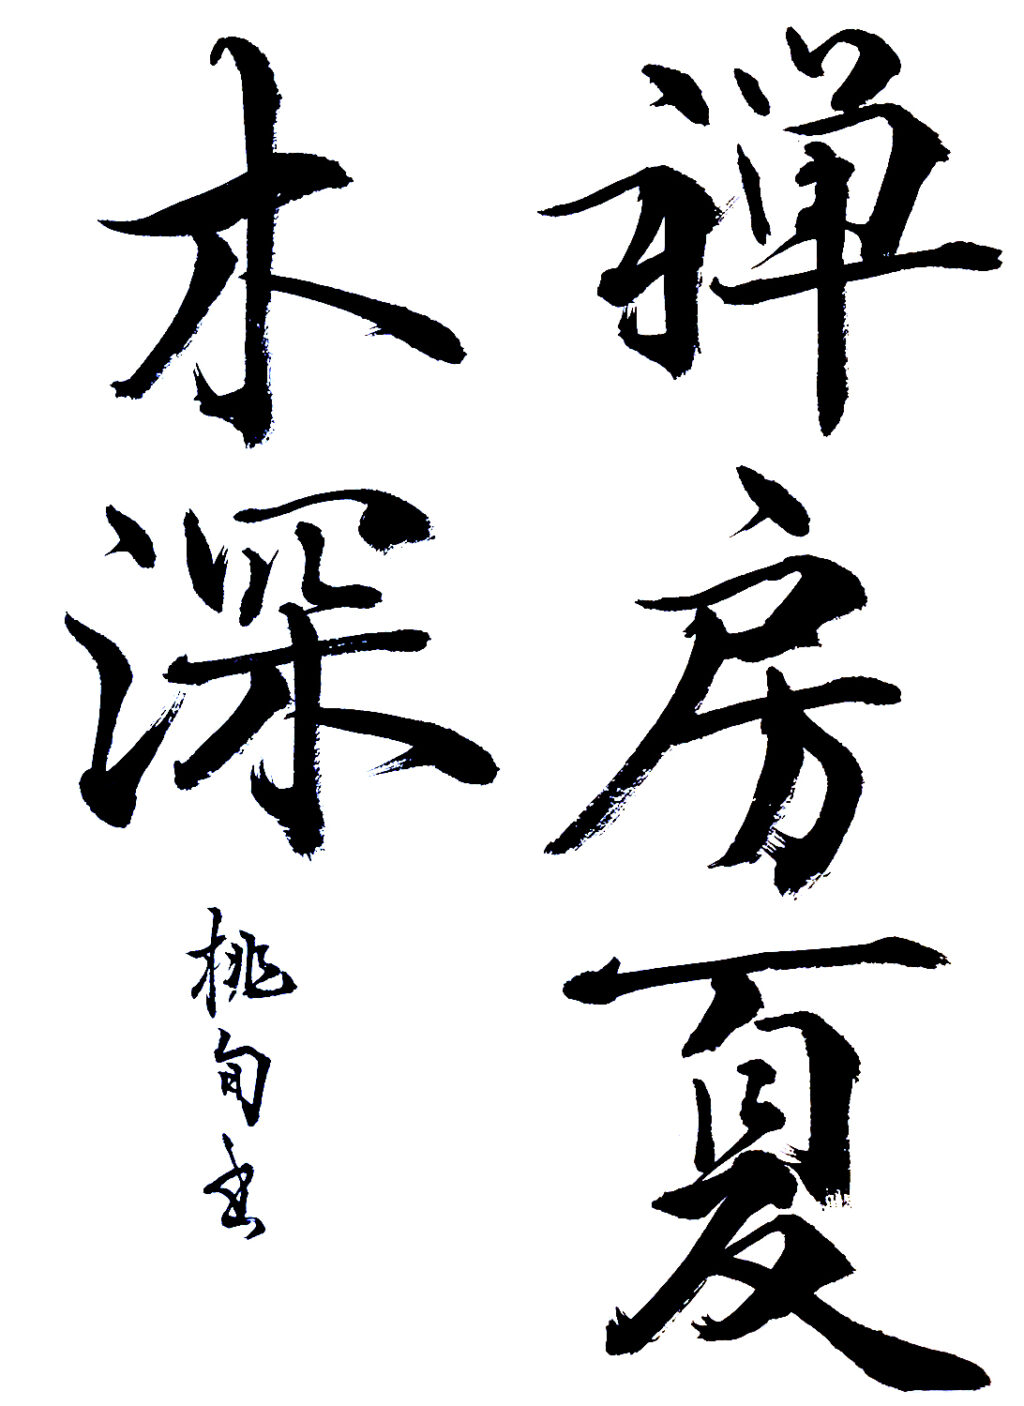 禅房夏
木深
桃旬書